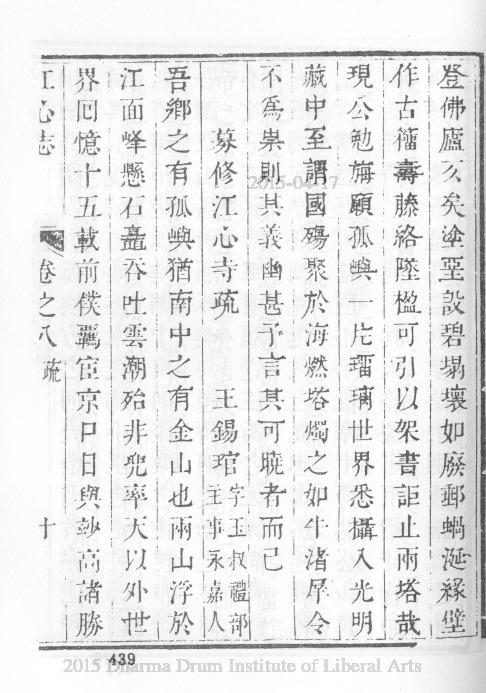 登佛廬久矣塗堊設碧塌壞如廢郵蝸涎緣壁
作古籀壽滕絡墜楹可引以架書詎止兩塔哉
現公勉旃顧孤嶼一片瑠璃世界悉攝入光明
藏中至謂國殤聚於海燃塔燭之如牛渚犀令
不爲祟則其義幽甚予言其可曉者而已
募修江心寺疏 王錫琯 字玉叔禮部主事永嘉人
吾鄉之有孤嶼猶南中之有金山也兩山浮於
江面峰懸石矗吞吐雲潮殆非兜率天以外世
界囘憶十五載前僕羈宦京口日與竗高諸勝
江心志 卷之八 疏 十
2015-04-17
439
2015 Dharma Drum Institute of Liberal Arts